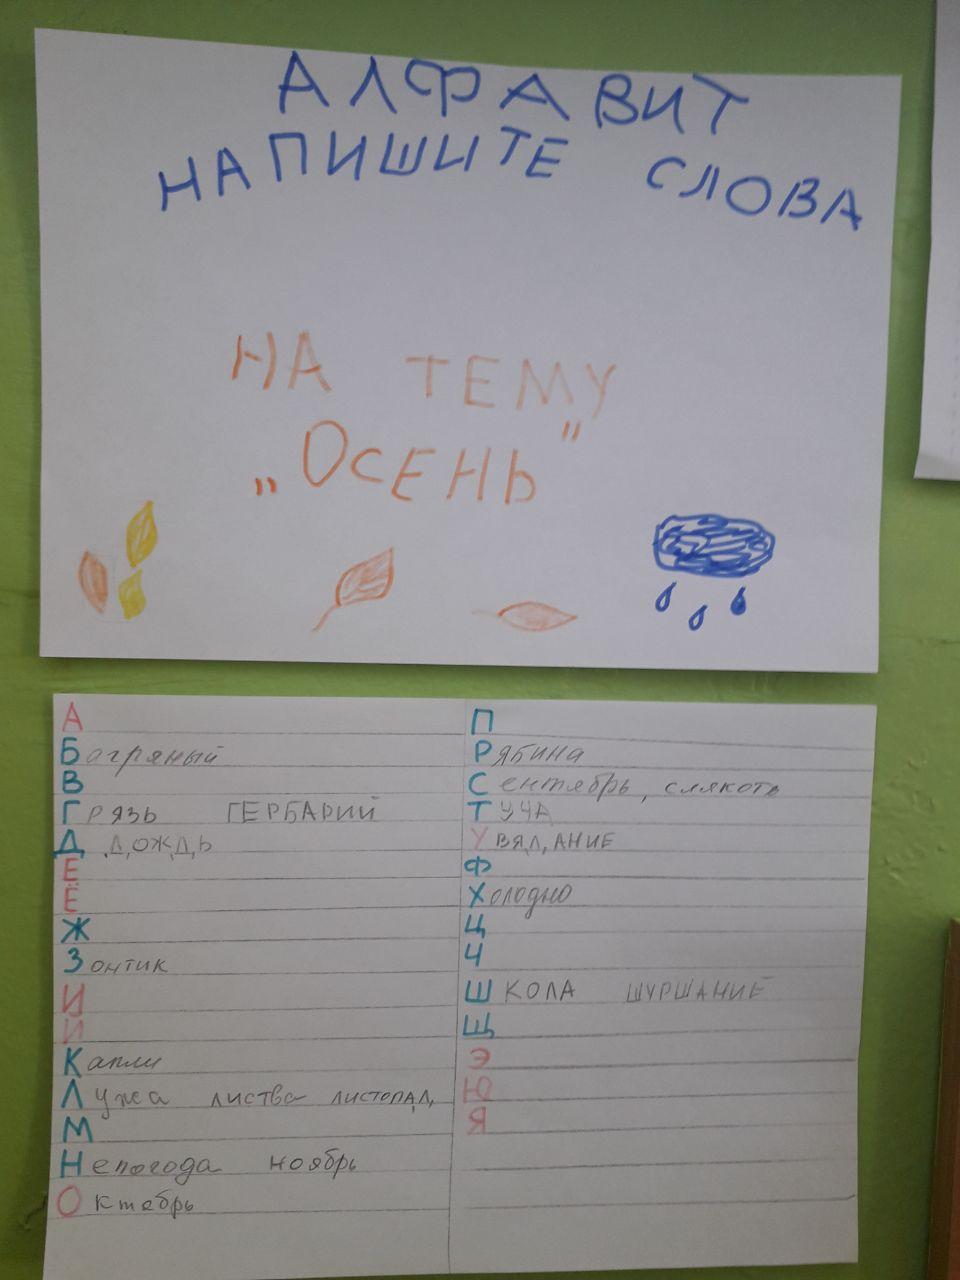 АЛФАВИТ
НАПИШИТЕ СЛОВА
НА ТЕМУ
„ОСЕНЬ"
А
Багряный
В
Грязь ГЕРБАРИЙ
Д ДОЖДЬ
Е
Ё
Ж
Зонтик
И
Й
Капли
Лужа листва листопад,
М
Непогода ноябрь
Октебрь
П
Рябина
Сентябрь, слякоть
ТУЧА
УВЯДАНИЕ
Ф
Холодно
Ц
Ч
ШКОЛА ШУРШАНИЕ
Щ
Э
Ю
Я